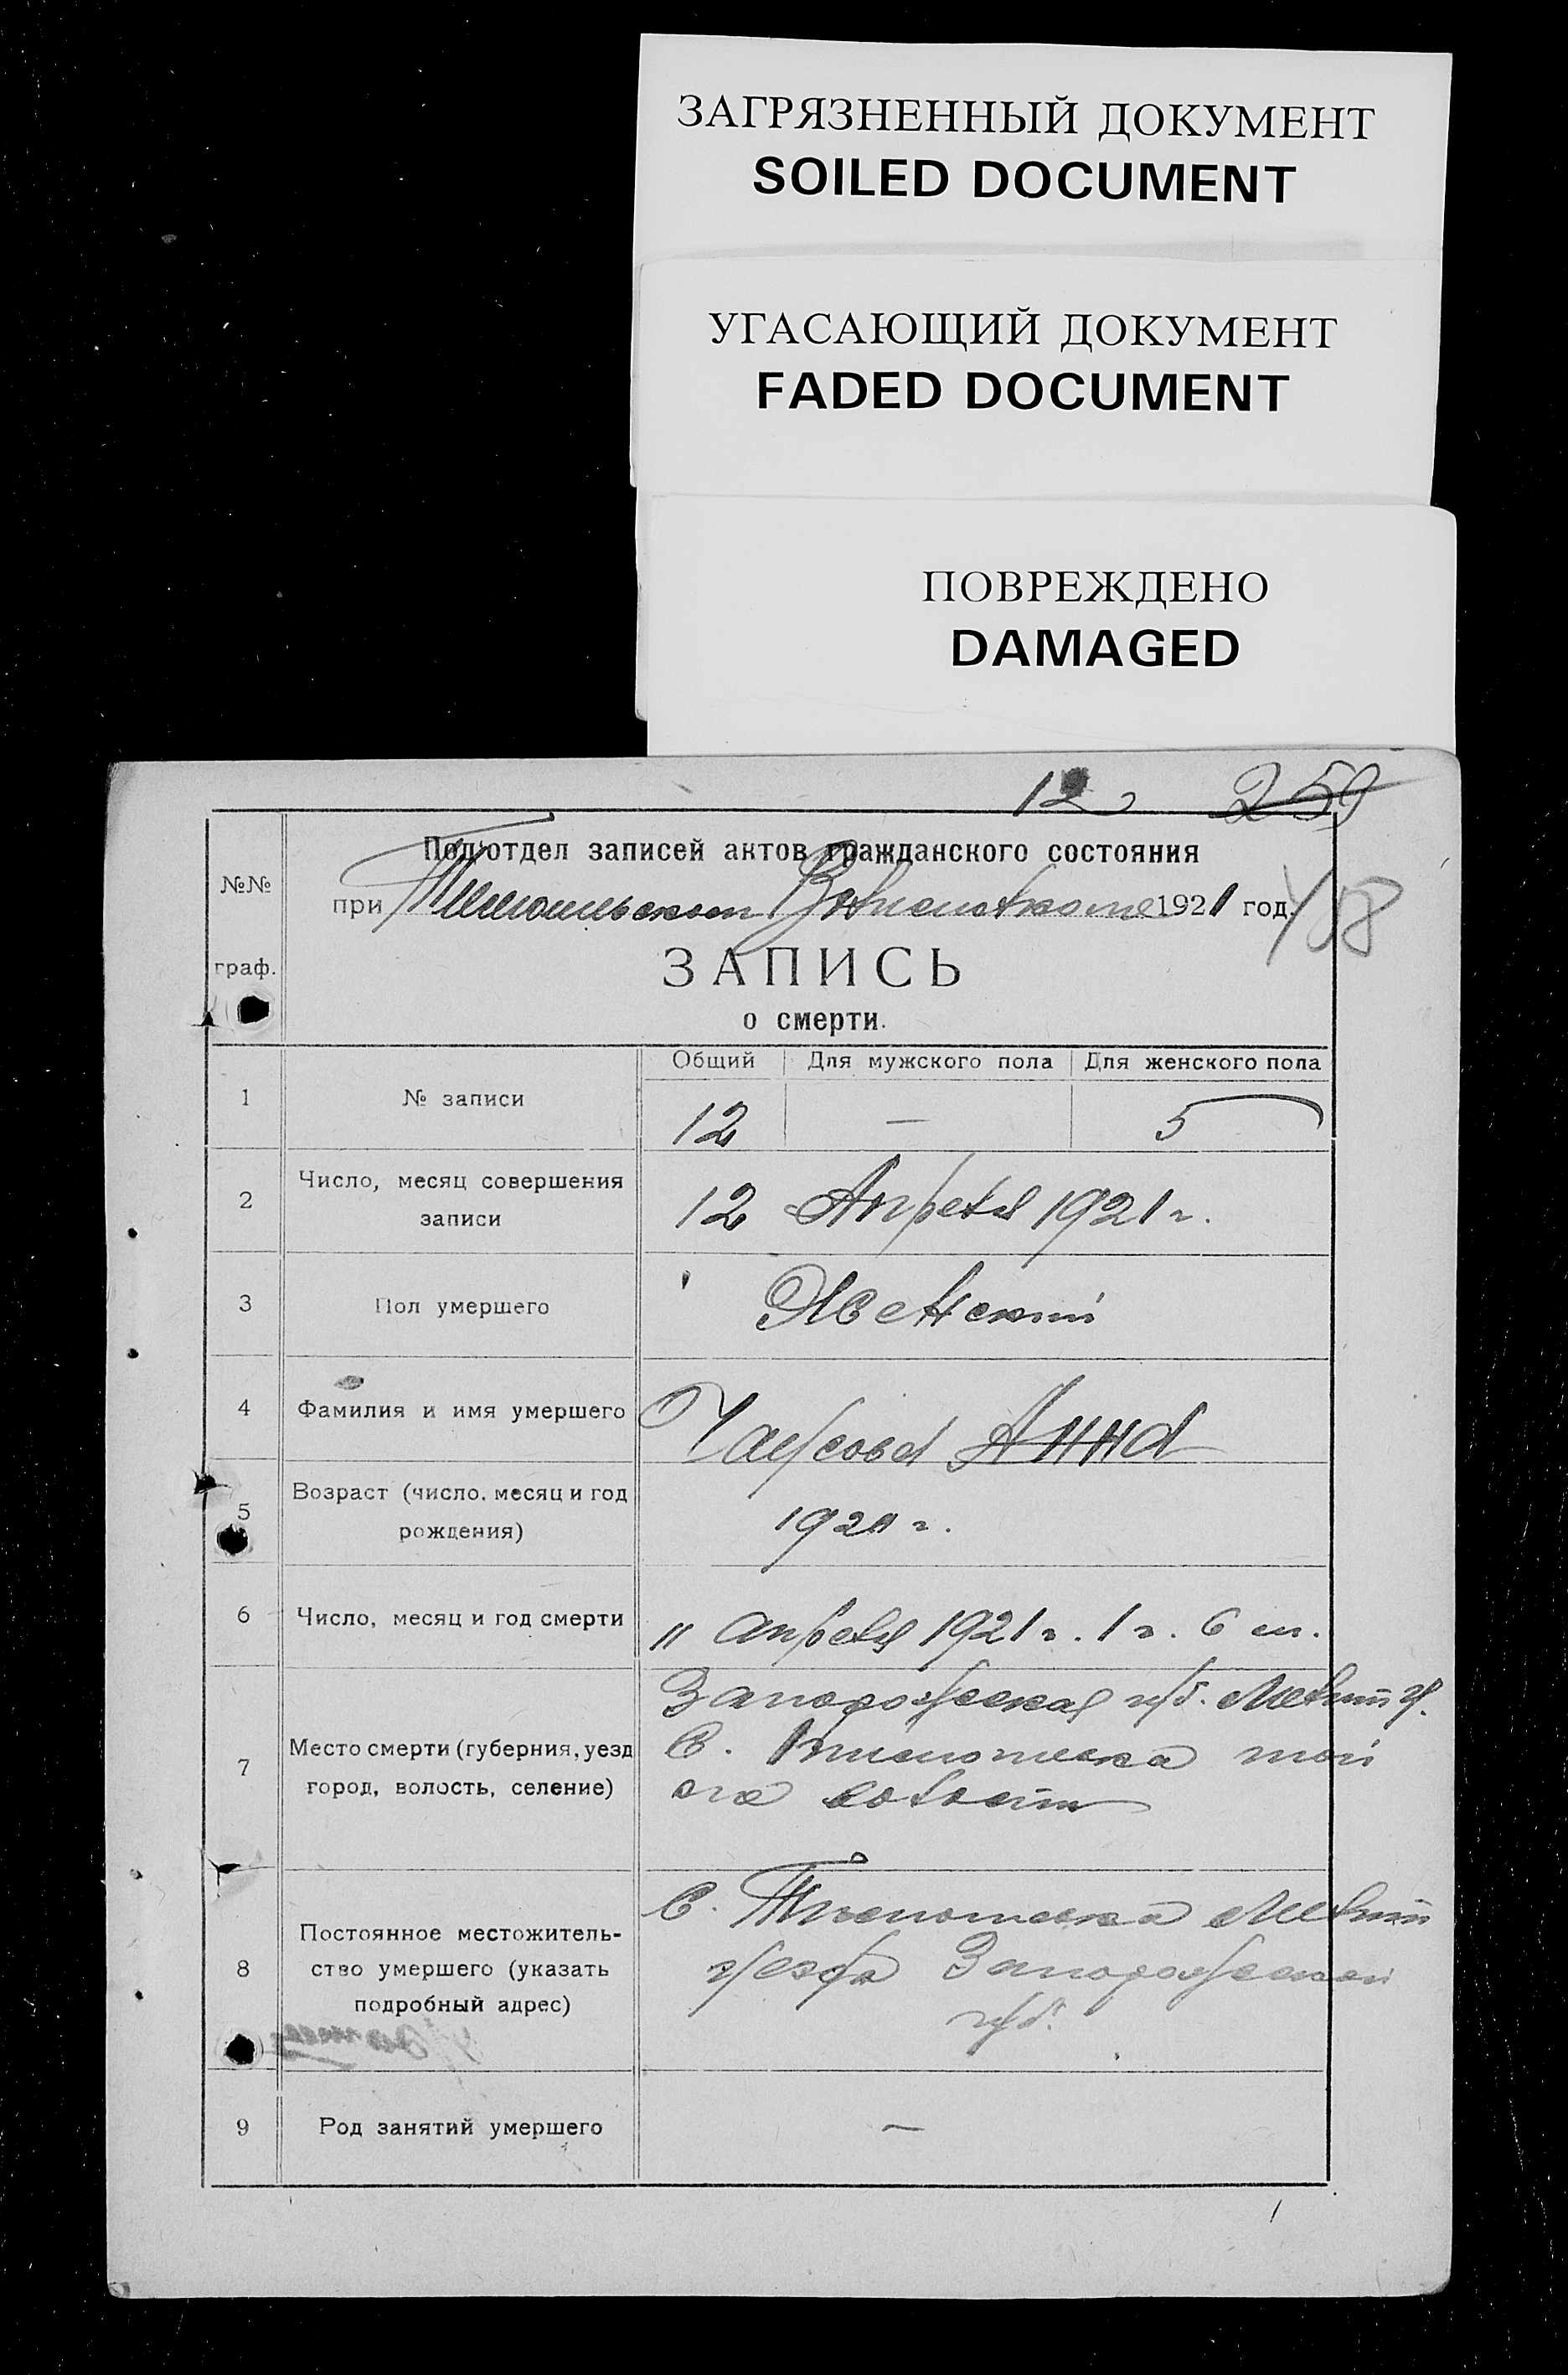 ЗАГРЯЗНЕННЫЙ ДОКУМЕНТ
SOILED DOCUMENT
УГАСАЮЩИЙ ДОКУМЕНТ
FADED DOCUMENT
ПОВРЕЖДЕНО
DAMAGED
12 259
№№ граф.
Подотдел записей актов гражданского состояния
при 1921 год.
ЗАПИСЬ
о смерти.
Общий Для мужского пола Для женского пола
1 № записи 12 — 5
2 Число, месяц совершения
записи
12 Апреля 1921 г.
3 Пол умершего Женский
4 Фамилия и имя умершего Чаусова Анна
5 Возраст (число, месяц и год
рождения)
192 г.
6 Число, месяц и год смерти 11 апреля 1921 г. 1 г. 6 м.
7 Место смерти (губерния, уезд
город, волость, селение)
Запорожская губ. Мелит у.
С. Тимошовка той
же волости
8 Постоянное местожитель-
ство умершего (указать
подробный адрес)
С. Тимошовка Мелит
уезда Запорожской
губ.
9 Род занятий умершего —